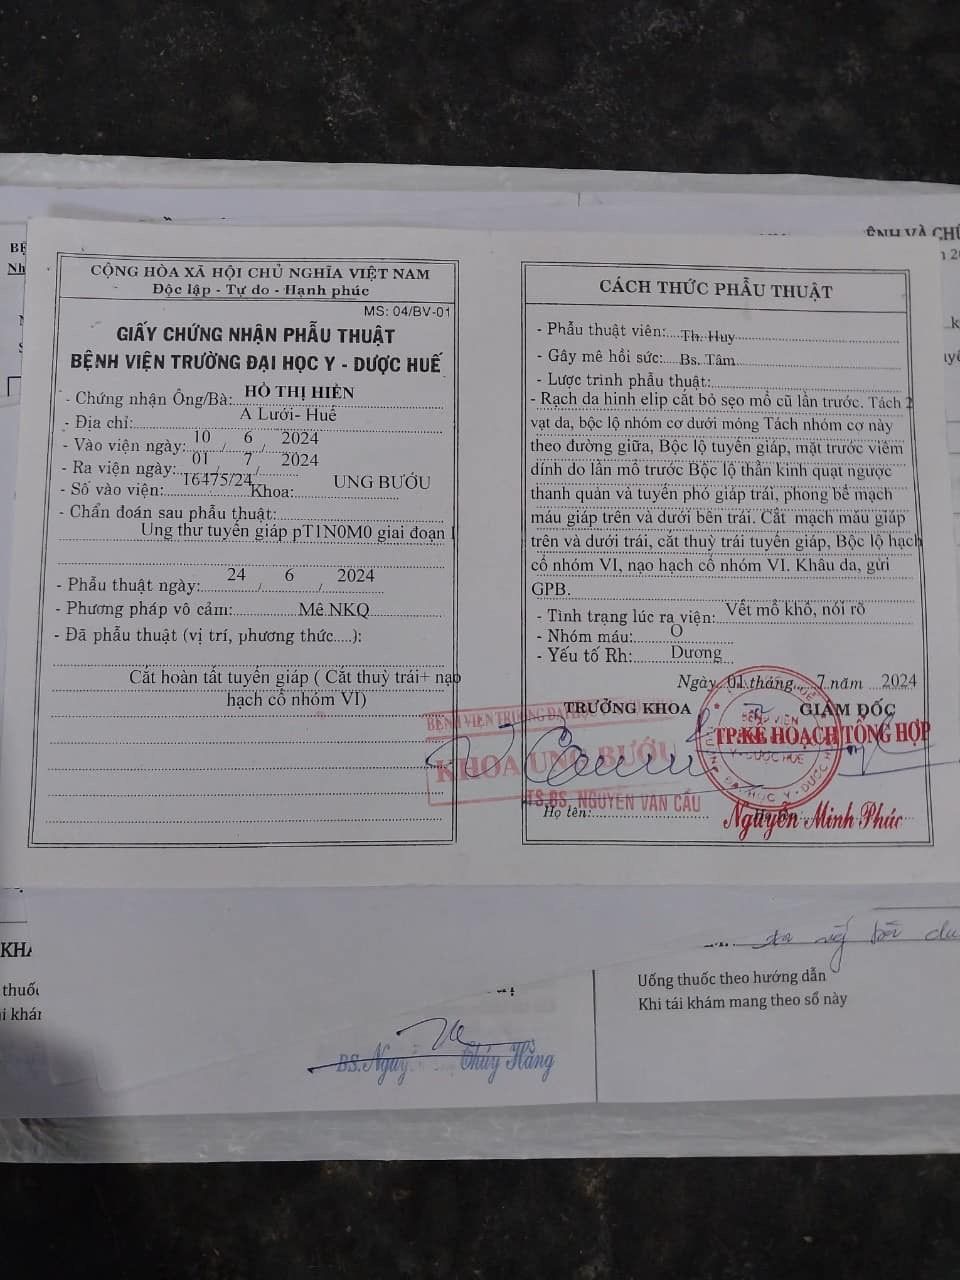 BỆ
Nh
ỆNH VÀ CHỮ
CỘNG HÒA XÃ HỘI CHỦ NGHĨA VIỆT NAM
Độc lập - Tự do - Hạnh phúc
MS: 04/BV-01
GIẤY CHỨNG NHẬN PHẪU THUẬT
BỆNH VIỆN TRƯỜNG ĐẠI HỌC Y - DƯỢC HUẾ
- Chứng nhận Ông/Bà: HỒ THỊ HIỀN
- Địa chỉ: A Lưới- Huế
- Vào viện ngày: 10 / 6 / 2024
- Ra viện ngày: 01 / 7 / 2024
- Số vào viện: 16475/24 Khoa: UNG BƯỚU
- Chẩn đoán sau phẫu thuật:
Ung thư tuyến giáp pT1N0M0 giai đoạn I
- Phẫu thuật ngày: 24 / 6 / 2024
- Phương pháp vô cảm: Mê NKQ
- Đã phẫu thuật (vị trí, phương thức.....):
Cắt hoàn tất tuyến giáp ( Cắt thuỳ trái+ nạo
hạch cổ nhóm VI)
CÁCH THỨC PHẪU THUẬT
- Phẫu thuật viên: Th. Huy
- Gây mê hồi sức: Bs. Tâm
- Lược trình phẫu thuật:
- Rạch da hình elip cắt bỏ sẹo mổ cũ lần trước. Tách 2
vạt da, bộc lộ nhóm cơ dưới móng Tách nhóm cơ này
theo đường giữa, Bộc lộ tuyến giáp, mặt trước viêm
dính do lần mổ trước Bộc lộ thần kinh quạt ngược
thanh quản và tuyến phó giáp trái, phong bế mạch
máu giáp trên và dưới bên trái. Cắt mạch máu giáp
trên và dưới trái, cắt thuỳ trái tuyến giáp, Bộc lộ hạch
cổ nhóm VI, nạo hạch cổ nhóm VI. Khâu da, gửi
GPB.
- Tình trạng lúc ra viện: Vết mổ khô, nói rõ
- Nhóm máu: O
- Yếu tố Rh: Dương
Ngày 01 tháng 7 năm 2024
TRƯỞNG KHOA GIÁM ĐỐC
BỆNH VIỆN TRƯỜNG ĐẠI HỌC
KHOA UNG BƯỚU
TS.BS. NGUYỄN VĂN CẦU
TP.KẾ HOẠCH TỔNG HỢP
BỆNH VIỆN
Y - DƯỢC HUẾ
ĐẠI HỌC Y - DƯỢC
Họ tên:
Nguyễn Minh Phúc
KHÁ
thuốc
i khám
BS.Nguyễn Thúy Hằng
Uống thuốc theo hướng dẫn
Khi tái khám mang theo sổ này